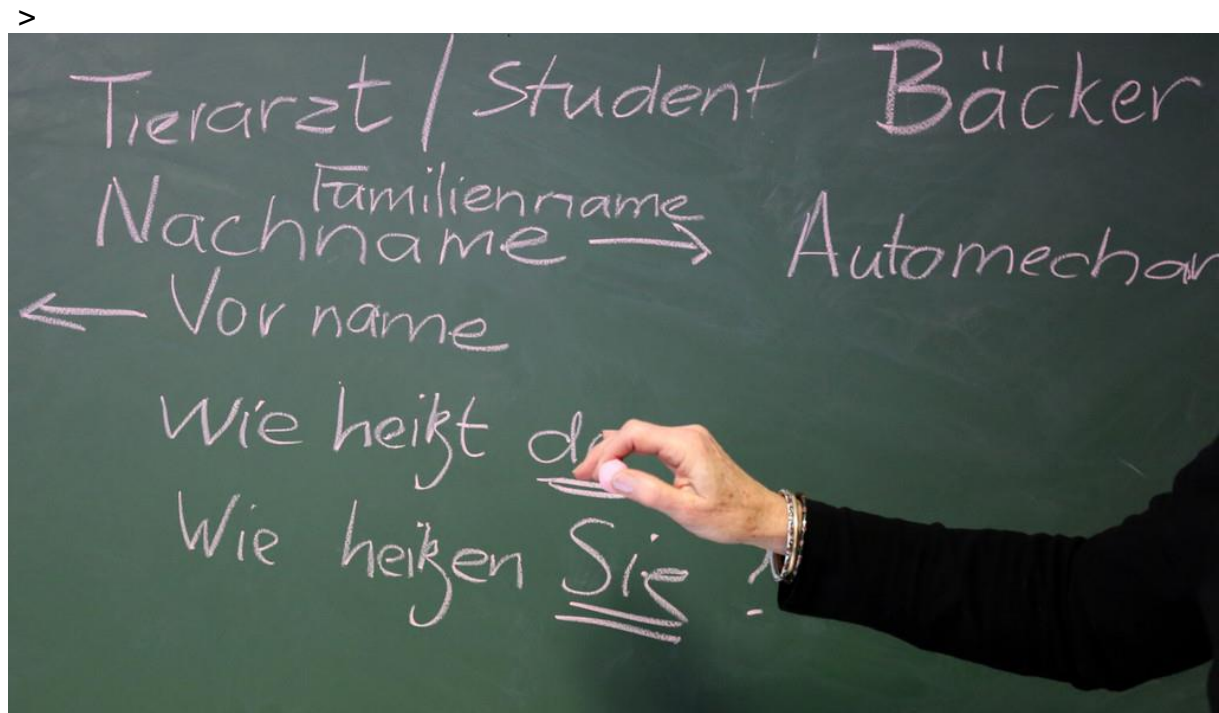 >
Tierarzt / Student Bäcker
Familienname
Nachname → Automechan
← Vorname
Wie heißt
Wie heißen Sie ?